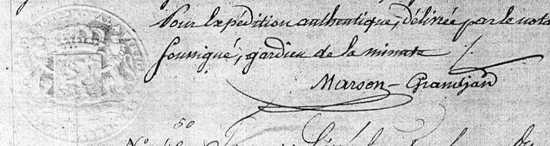 Pour Expédition authentique, délivrée par le nota
soussigné, gardien de la minute
Marson-Grandjean
50